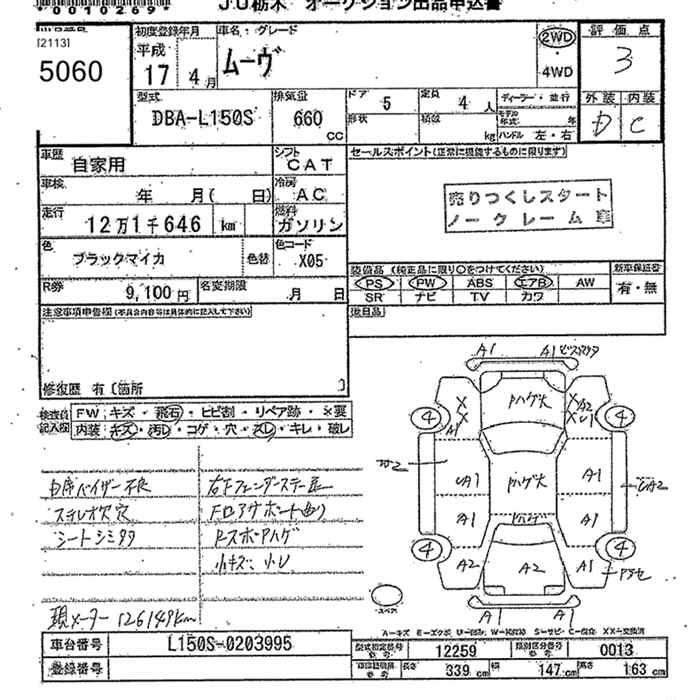 00102691 JU栃木 オークション出品申込書
出品番号
[2113]
5060
初度登録年月 車名・グレード
平成
17 4月
ムーヴ
2WD
4WD
評価点
3
外装 内装
D C
型式 排気量 ドア 5 定員 4人 ディーラー・並行
DBA-L150S 660 CC 形状 積数 kg モデル年式 年
ハンドル 左・右
車歴 自家用 シフト CAT
セールスポイント(正常に機能するものに限ります)
車検 年 月( 日) 冷房 AC
売りつくしスタート
ノークレーム車
走行 12万1千646 km 燃料 ガソリン
色 ブラックマイカ 色替 色コード X05
装備品(純正品に限り○をつけてください) 新車保証書
PS PW ABS エアB AW 有・無
SR ナビ TV カワ
R券 9,100円 名変期限 月 日
後日品
注意事項申告欄(不具合内容等は具体的に記入して下さい)
修復歴 有〔箇所 〕
検査員記入欄 FW キズ・飛石・ヒビ割・リペア跡・×要
内装 キズ・汚レ・コゲ・穴・スレ・キレ・破レ
A1 A1
Pハゲ大
X X A2
X X U1
A1
4 4
UA1 Pハゲ大 A1 UA2
A1 Pハゲ A1
4 4
A2 A2 A1
A1 A1
スペア
内席バイザー不良 右Fフェンダーステー
ステレオ穴
シートシミ Rスポ Pハゲ
小キズ
現メーター 126149km
A-キズ E-エクボ U-凹み W-波打ち S-サビ C-腐食 XX-交換済
車台番号 L150S-0203995 型式指定番号 12259 類別区分番号 0013
登録番号 長さ 339 cm 幅 147 cm 高さ 163 cm